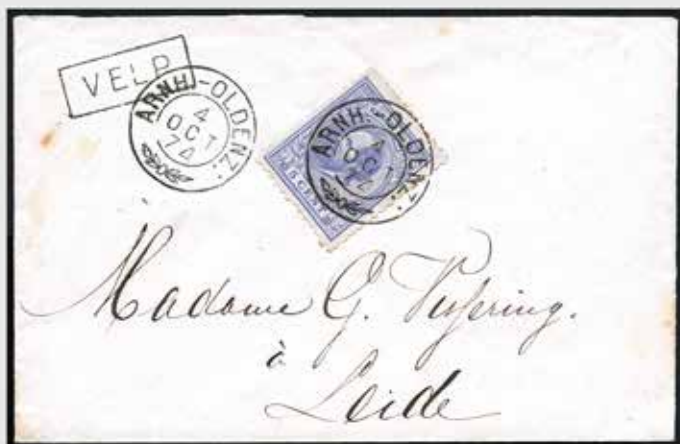 VELP
ARNH.-OLDENZ:
4
OCT
74
ARNH.-OLDENZ:
4
OCT
74
Madame G.
à
Leide